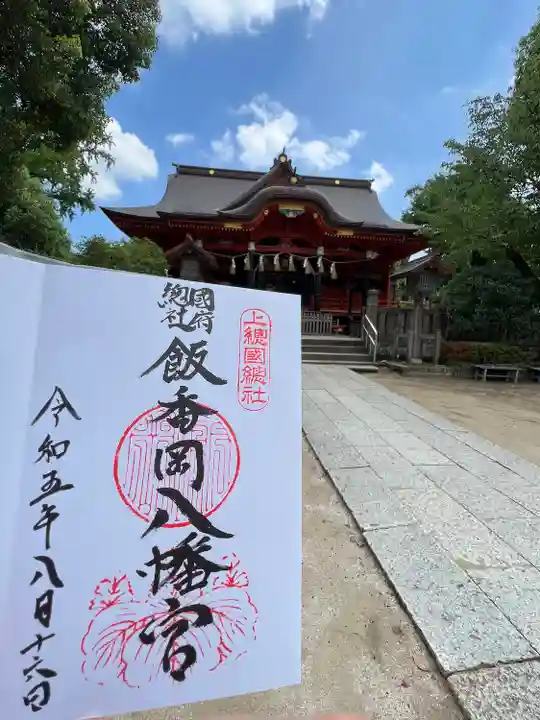 上總國總社
國府
總社
飯香岡八幡宮
令和五年八日十六日